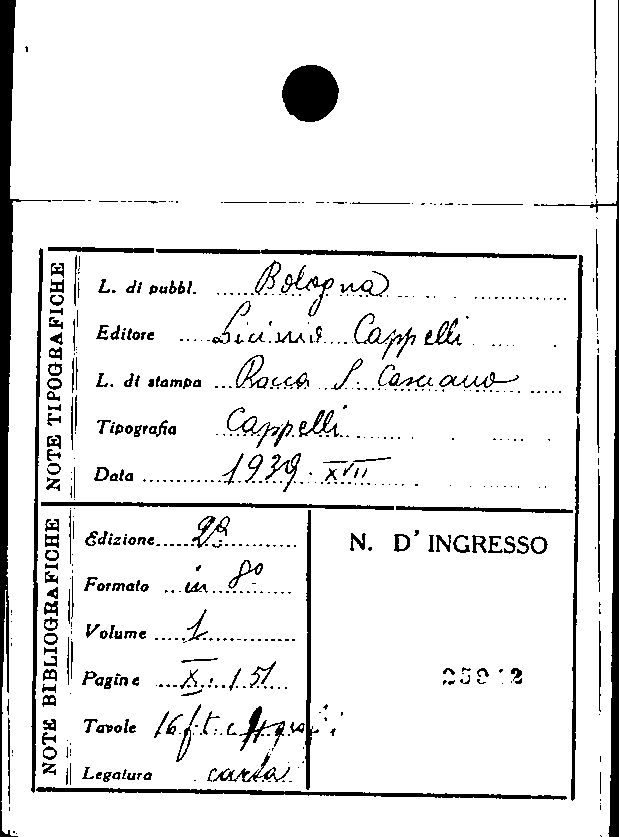 NOTE TIPOGRAFICHE
L. di pubbl. Bologna
Editore Licinio Cappelli
L. di stampa Rocca S. Casciano
Tipografia Cappelli
Data 1939. XVII
NOTE BIBLIOGRAFICHE
Edizione 2ª
Formato in 8º
Volume 1
Pagine X. 151
Tavole 16 f. t. e
Legatura carta
N. D' INGRESSO